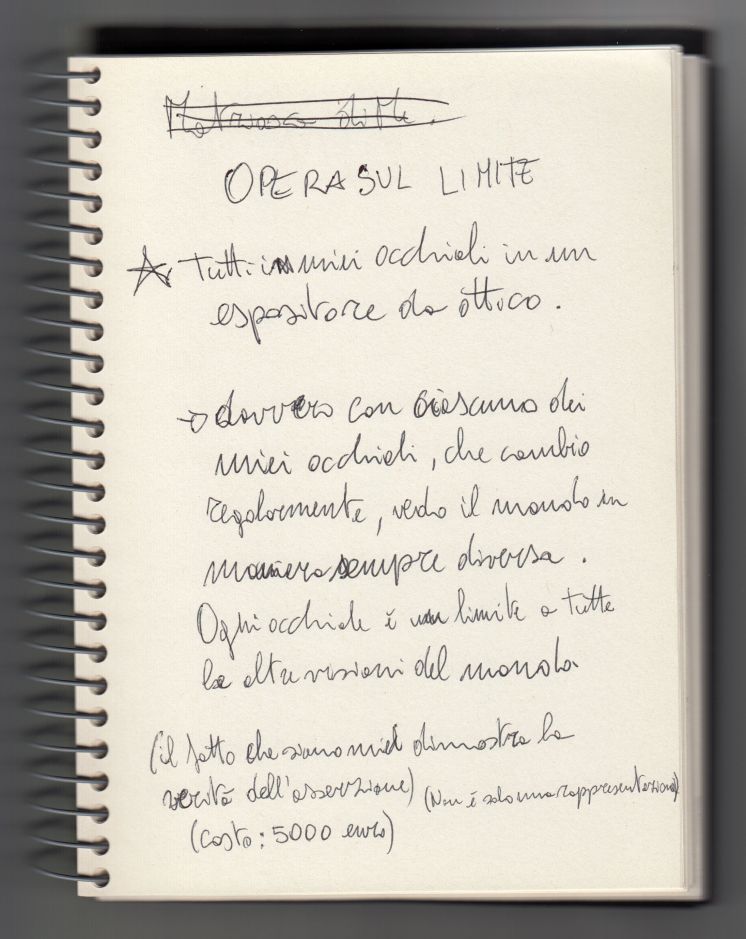 OPERA SUL LIMITE
Tutti i miei occhiali in un
espositore da ottico.
davvero con ciascuno dei
miei occhiali, che cambio
regolarmente, vedo il mondo in
maniera sempre diversa.
Ogni occhiale è un limite a tutte
le altre visioni del mondo
(il fatto che siano miei dimostra la
verità dell'asserzione) (Non è solo una rappresentazione)
(Costo: 5000 euro)